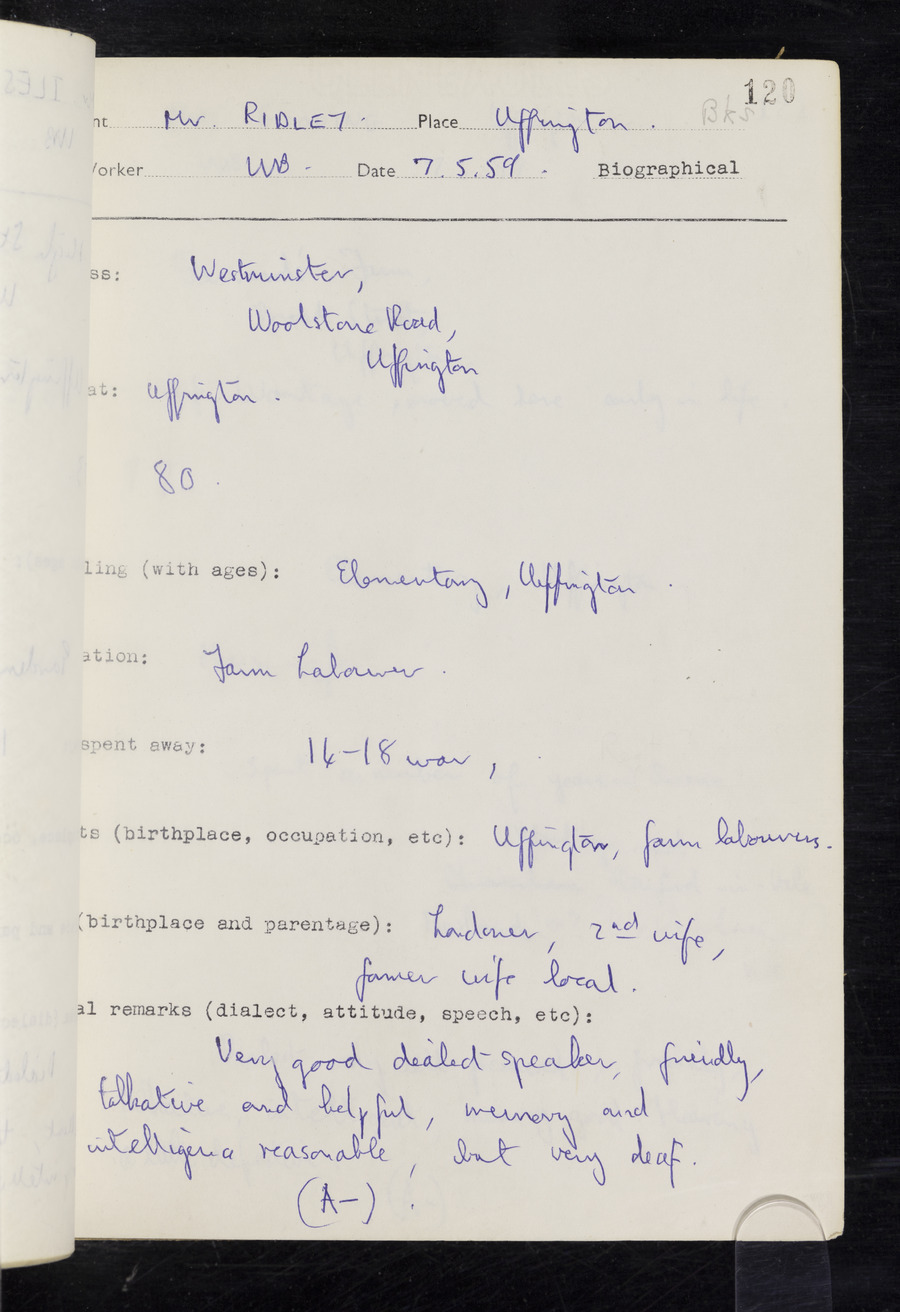 120
nt Mr. RIDLEY. Place Uffington. Bks
orker WB. Date 7.5.59. Biographical
ss: Westminster,
Woolstone Road,
Uffington
at: Uffington.
80.
ling (with ages): Elementary, Uffington.
ation: Farm Labourer.
spent away: 14-18 war,
ts (birthplace, occupation, etc): Uffington, farm labourers.
(birthplace and parentage): Londoner, 2nd wife,
former wife local.
al remarks (dialect, attitude, speech, etc):
Very good dialect speaker, friendly,
talkative and helpful, memory and
intelligence reasonable, but very deaf.
(A-).